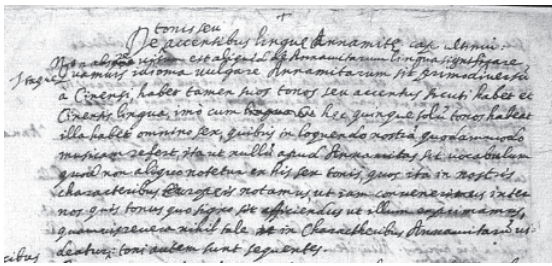 tonis seu
De accentibus linguæ Annamiticæ cap.
Non abs re est aliquid de Annamitarum lingua significare
quamvis idioma vulgare Annamitarum sit diversũ
à Cinensi, habet tamen suos tonos seu accentus sicuti habet et
Cinensis lingua, imò cum hęc quinque solũ tonos habeat
illa habet omnino sex, quibus in loquendo nostrã quodammodo
musicam refert, ita ut nullũ apud Annamitas sit vocabulum
quod non aliquo notetur ex his sex tonis, quos ita in nostris
characteribus Europeis notamus ut iam convenerimus inter
nos quis tonus quo signo sit afficiendus ut illum exprimamus,
quamvis revera nihil tale in characteribus Annamitarũ vi-
deatur, toni autem sunt sequentes.